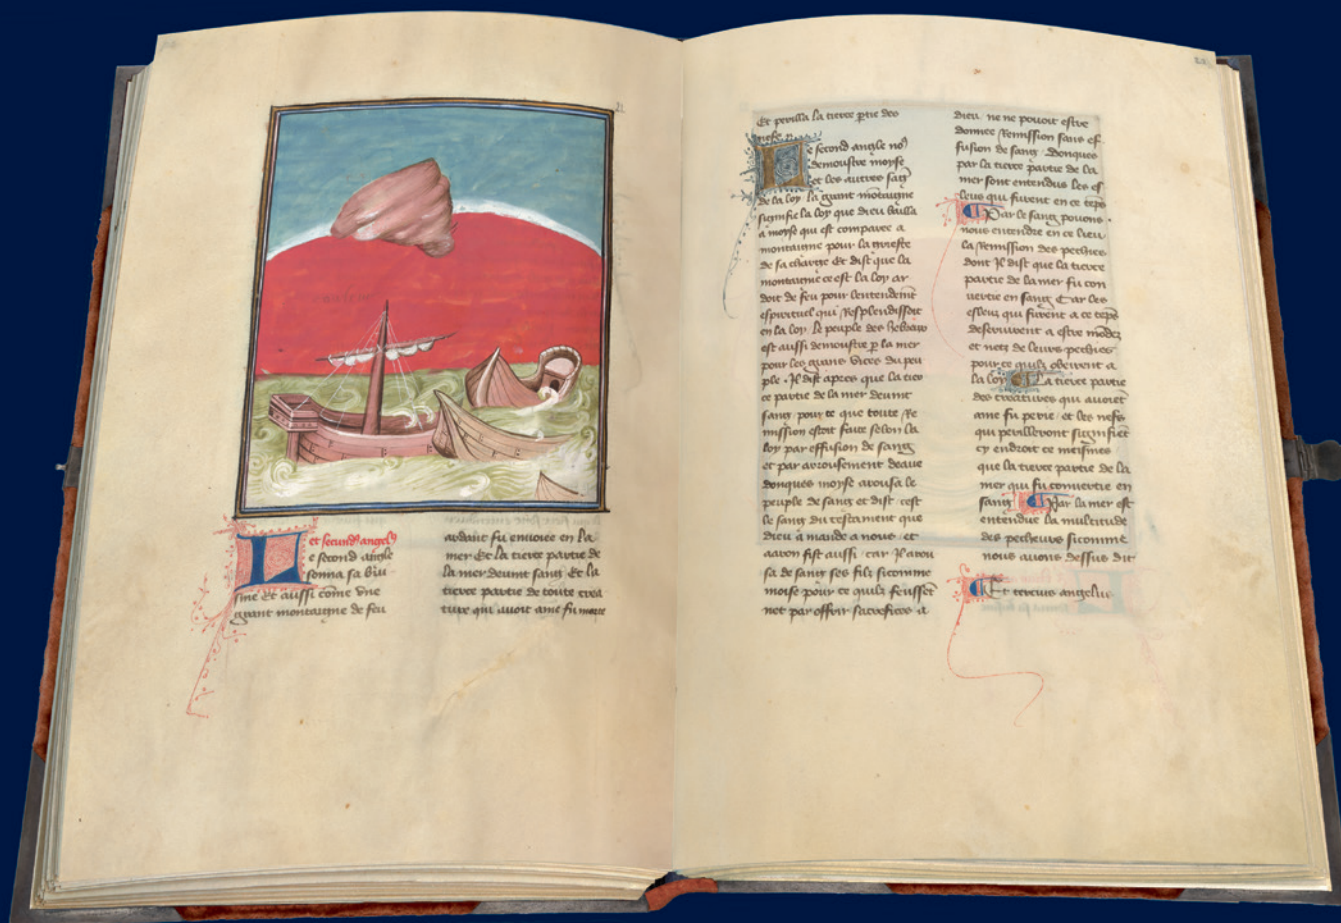 et secund9 angel9
e second angle
sonna sa bui
sine Et aussi cõme vne
grant montaigne de feu
ardant fu enuoiee en la
mer Et la tierce partie de
la mer deuint sang Et la
tierce partie de toute crea
ture qui auoit ame fu morte
Et perilla la tierce ptie des
nefs
Le second angle no9
demoustre moyse
et les autres sag
de la loy. la grant mõtaigne
signifie la loy que dieu bailla
a moyse qui est comparee a
montaigne pour la griefte
de sa charge Et dist que la
montaigne ce est la loy ar
doit de feu pour lentendemt
espirituel qui resplendissoit
en la loy. Le peuple des hebrieux
est aussi demoustre p la mer
pour les grans vices du peu
ple. Il dist apres que la tier
ce partie de la mer deuint
sang pour ce que toute re
mission estoit faite selon la
loy par effusion de sang
et par arrousement deaue
donques moyse arousa le
peuple de sang et dist cest
le sang du testament que
dieu a mande a nous. et
aaron fist aussi. car Il arou
sa de sang ses filz sicomme
moise pour ce quilz feussent
net par offrir sacrefices a
dieu. ne ne pouoit estre
donnee remission sans ef
fusion de sang. Donques
par la tierce partie de la
mer sont entendus les es
leus qui furent en ce teps
Par le sang pouons
nous entendre en ce lieu
la remission des pechies
dont Il dist que la tierce
partie de la mer fu con
uertie en sang Car les
esleuz qui furent a ce teps
desseruirent a estre mõdez
et netz de leurs pechies
pour ce quilz obeirent a
la loy La tierce partie
des creatures qui auoiẽt
ame fu perie. et les nefs
qui perilleront signifiẽt
cy endroit ce meismes
que la tierce partie de la
mer qui fu conuertie en
sang Par la mer est
entendue la multitude
des pecheurs sicomme
nous auons dessus dit
Et tercius angelus